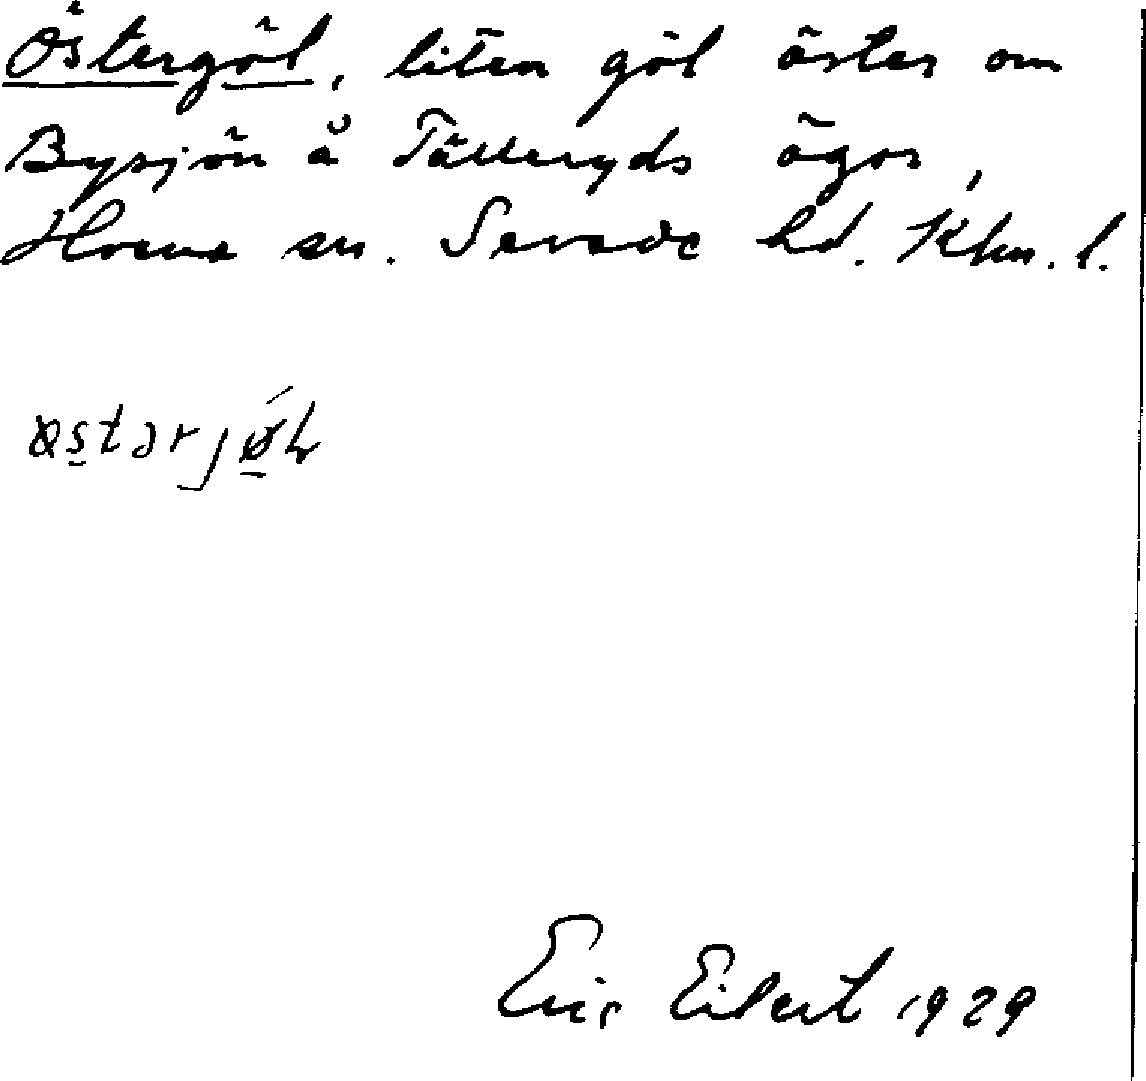 Östergöl, liten göl öster om
Bysjön å Tälleryds ägor,
sn. Sevede hd. Klm. l.
Eric Eilert 1929